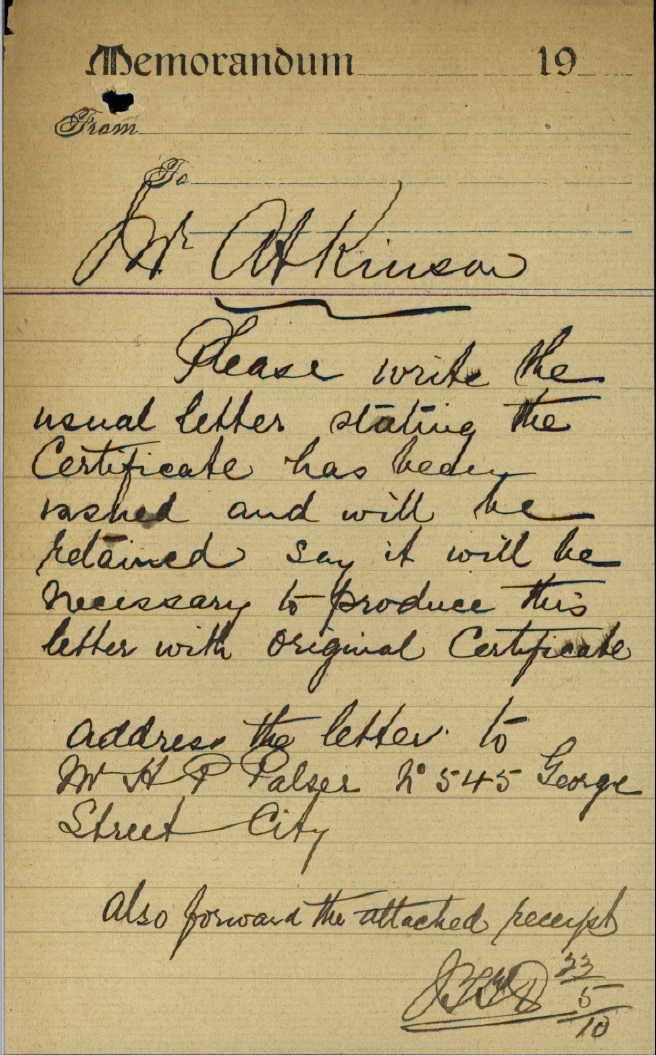 Memorandum 19
From
To
Mr Atkinson
Please write the
usual letter stating the
Certificate has been
issued and will be
retained say it will be
necessary to produce this
letter with original Certificate
address the letter to
Mr H P Palser No 545 George
Street City
Also forward the attached receipt
23
5
10